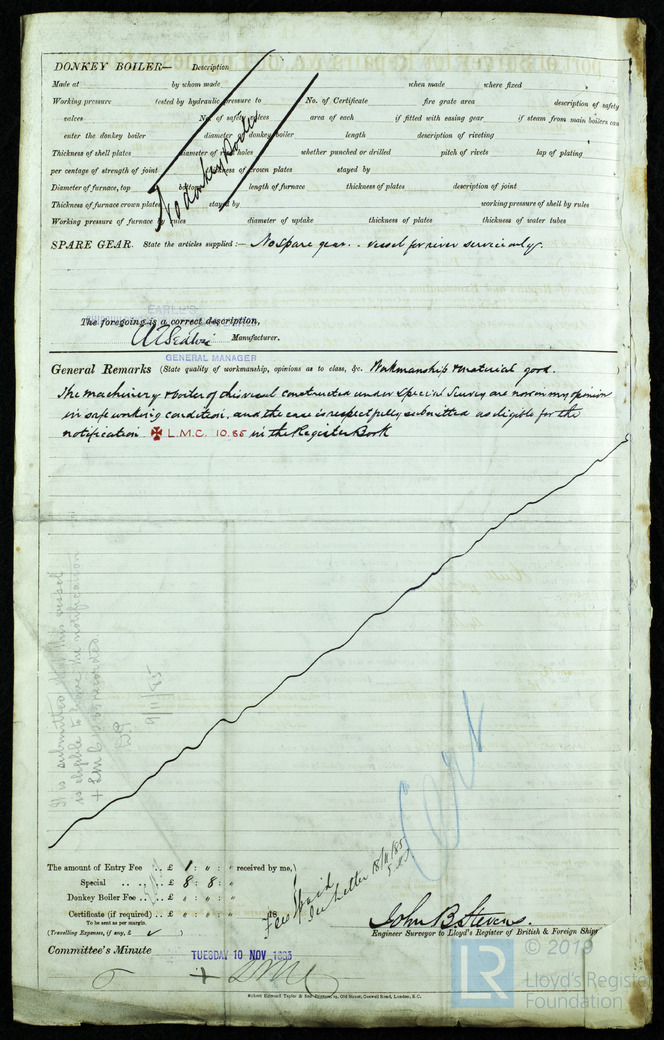 DONKEY BOILER— Description
Made at by whom made when made where fixed
Working pressure tested by hydraulic pressure to No. of Certificate fire grate area description of safety
valves No. of safety valves area of each if fitted with easing gear if steam from main boilers can
enter the donkey boiler diameter of donkey boiler length description of riveting
Thickness of shell plates diameter of rivet holes whether punched or drilled pitch of rivets lap of plating
per centage of strength of joint thickness of crown plates stayed by
Diameter of furnace, top bottom length of furnace thickness of plates description of joint
Thickness of furnace crown plates stayed by working pressure of shell by rules
Working pressure of furnace by rules diameter of uptake thickness of plates thickness of water tubes
No donkey boiler
SPARE GEAR. State the articles supplied:— No spare gear.. vessel for river service only.
EARLE'S
The foregoing is a correct description,
Manufacturer.
GENERAL MANAGER
General Remarks (State quality of workmanship, opinions as to class, &c. Workmanship & material good.
The machinery & boiler of this vessel constructed under Special Survey are now in my opinion
in safe working condition, and the case is respectfully submitted as eligible for the
notification ✠ L.M.C. 10.85 in the Register Book
It is submitted that this vessel
is eligible to have the notification
+ LMC 10.85 recorded.
9/11/85
Cert
The amount of Entry Fee .. £ 1 : " : " received by me,
Special .. .. £ 8 : 8 : "
Donkey Boiler Fee .. £ " : " : "
Certificate (if required) .. £ " : " : " 18
To be sent as per margin.
(Travelling Expenses, if any, £ )
Fees paid
See Letter 18/11/85
John B. Stevens.
Engineer Surveyor to Lloyd's Register of British & Foreign Ship
Committee's Minute
TUESDAY 10 NOV 1885
+ LMC
Robert Edmund Taylor & Son Printers, 19, Old Street, Goswell Road, London, E.C.
© 2019
LR
Lloyd's Register
Foundation